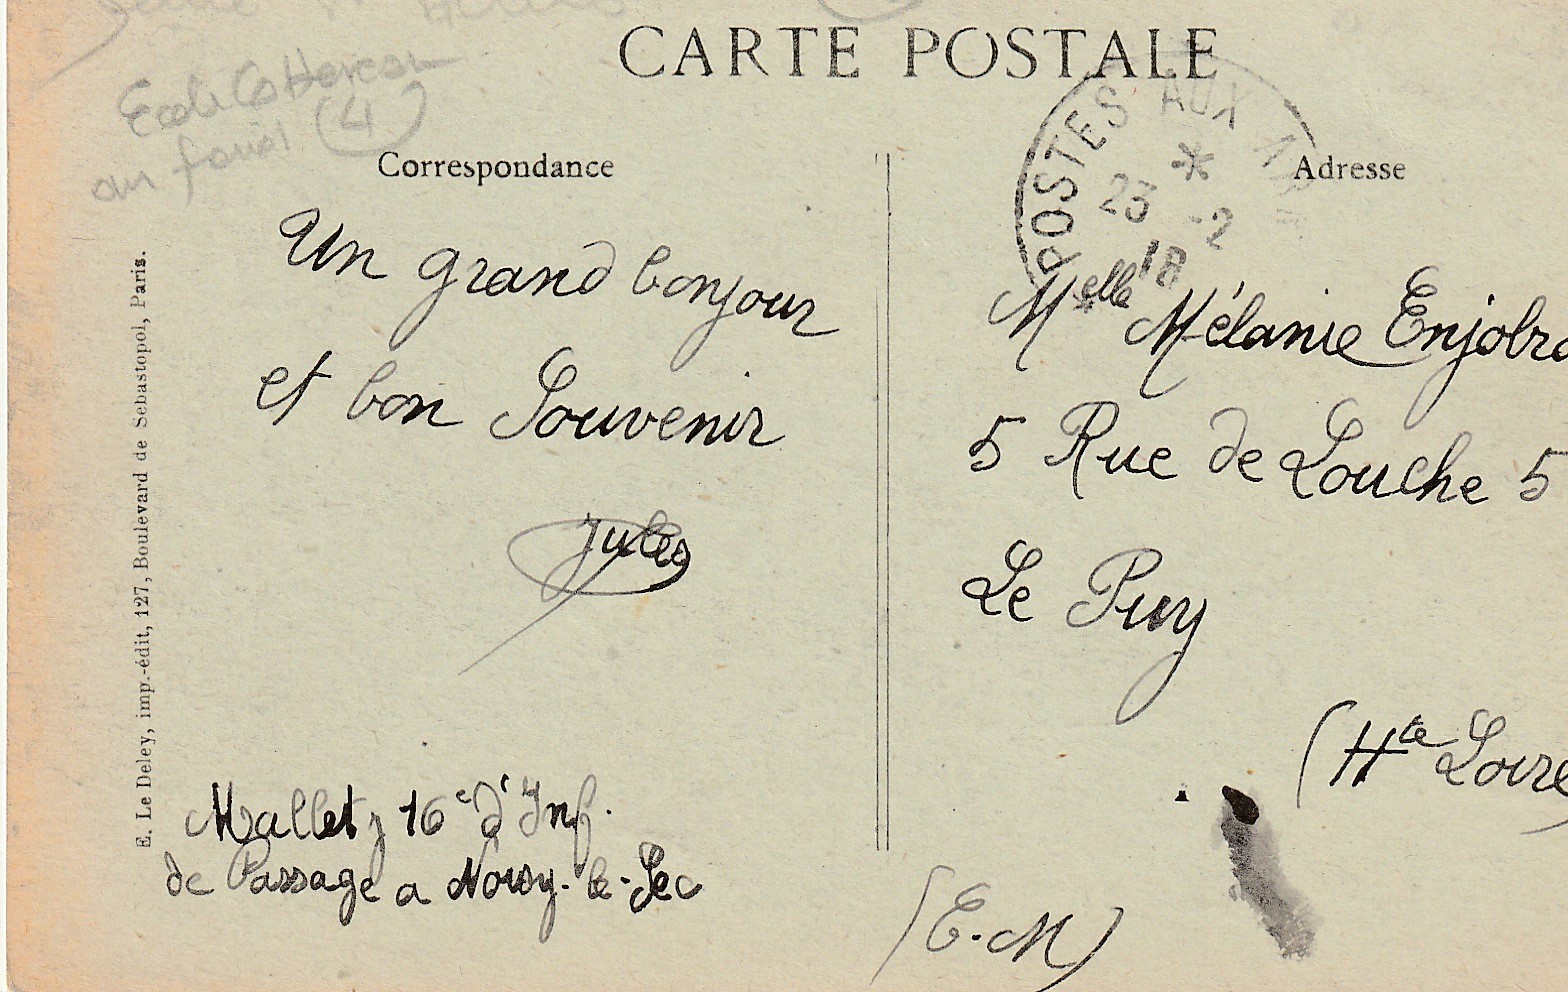 CARTE POSTALE
Ecole
au
(4)
Correspondance
Adresse
POSTES AUX ARM
23 -2
18
Un grand bonjour
et bon Souvenir
Jules
Mallet, 16e d'Inf.
de Passage a Noisy-le-Sec
Melle Mélanie Enjolra
5 Rue de Louche 5
Le Puy
(Hte Loire
(E.M)
E. Le Deley, imp.-édit, 127, Boulevard de Sebastopol, Paris.